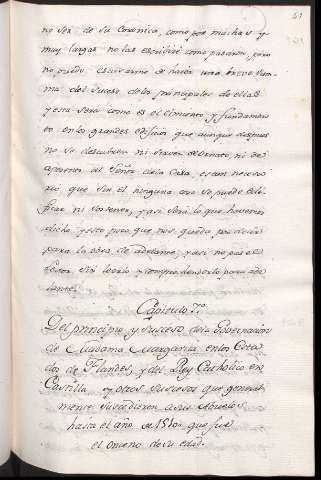 51
no ser de su Coronica, como por muchas y
muy largas no las escribiré como pasaron, pero
no puedo escusarme de hacer una breve Su-
ma del Suceso de los principales de ellas
y esta sera como es el cimiento y fundamen
to en los grandes edificios que aunque despues
no se descubren ni sirven de ornato, ni de
aposento al Señor de la Casa, es tan necesa
rio que sin el ninguna cosa se puede edi-
ficar ni sostener, y asi será lo que havemos
dicho y esto para que nos quede por
para la obra de adelante, y asi no pase el
Lector sin leerlo y comprendiendolo para ade
lante.
Capitulo 7º
Del principio y Suceso de la Governacion
de Madama Margarita en los Esta
dos de Flandes, y del Rey Catholico en
Castilla, y otros sucesos que general
mente sucedieron a sus Abuelos
hasta el año de 1510 que fue
el onceno de su edad.